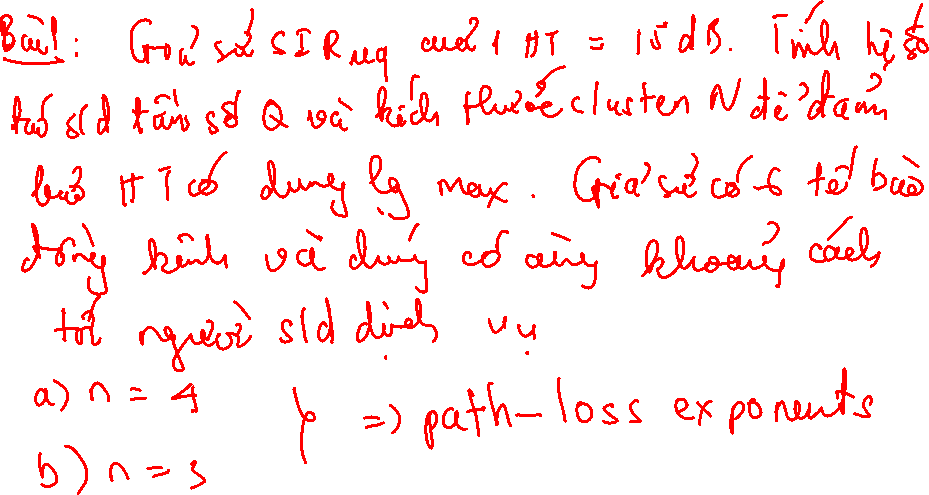 Bài 1: Giả sử SIR req của 1 HT = 15 dB. Tính hệ số
tái s/d tần số Q và kích thước cluster N để đảm
bảo HT có dung lg max. Giả sử có 6 tế bào
đồng kênh và chúng có cùng khoảng cách
tới người s/d dịch vụ
a) n = 4
} => path-loss exponents
b) n = 3